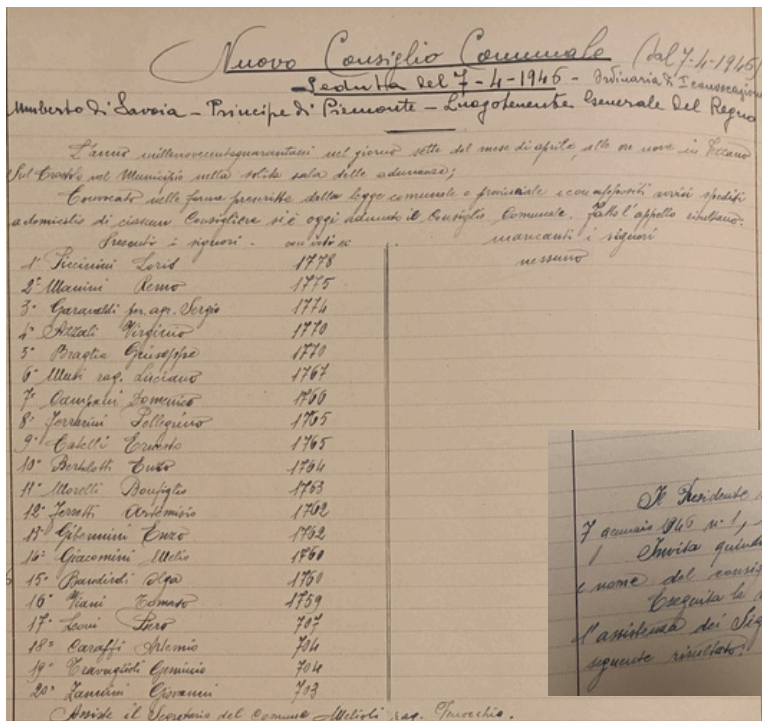 Nuovo Consiglio Comunale (dal 7-4-1946)
Seduta del 7-4-1946 - Ordinaria di I convocazione
Umberto di Savoia - Principe di Piemonte - Luogotenente Generale del Regno
L'anno millenovecentoquarantasei nel giorno sette del mese di aprile, alle ore nove in
sul nel Municipio nella solita sala delle adunanze;
Convocato nelle forme prescritte dalla legge comunale e provinciale e con appositi avvisi spediti
a domicilio di ciascun Consigliere si è oggi adunato il Consiglio Comunale. Fatto l'appello risultano:
Presenti i signori - con voti n. mancanti i signori
nessuno
1° Piccinini Loris 1778
2° Manini Remo 1775
3° Garavaldi per. agr. Sergio 1774
4° Azzali Virginio 1770
5° Braglia Giuseppe 1770
6° rag. Luciano 1767
7° Campani Domenico 1766
8° Ferrarini Pellegrino 1765
9° Catelli Ernesto 1765
10° Bertolotti Enzo 1764
11° Morelli Bonfiglio 1763
12° Ferretti Artemisio 1762
13° Enzo 1762
14° Giacomini 1760
15° Olga 1760
16° Viani Tomaso 1759
17° Leoni Piero 707
18° Caraffi Artemio 704
19° Travaglioli Geminio 704
20° Zambini Giovanni 703
Assiste il Segretario del Comune Melioli rag. Ferrocchio.
Il Presidente
7 gennaio 1946 n. 1,
Invita quindi
e nome del consig
Eseguita la
l'assistenza dei Sig
seguente risultato: